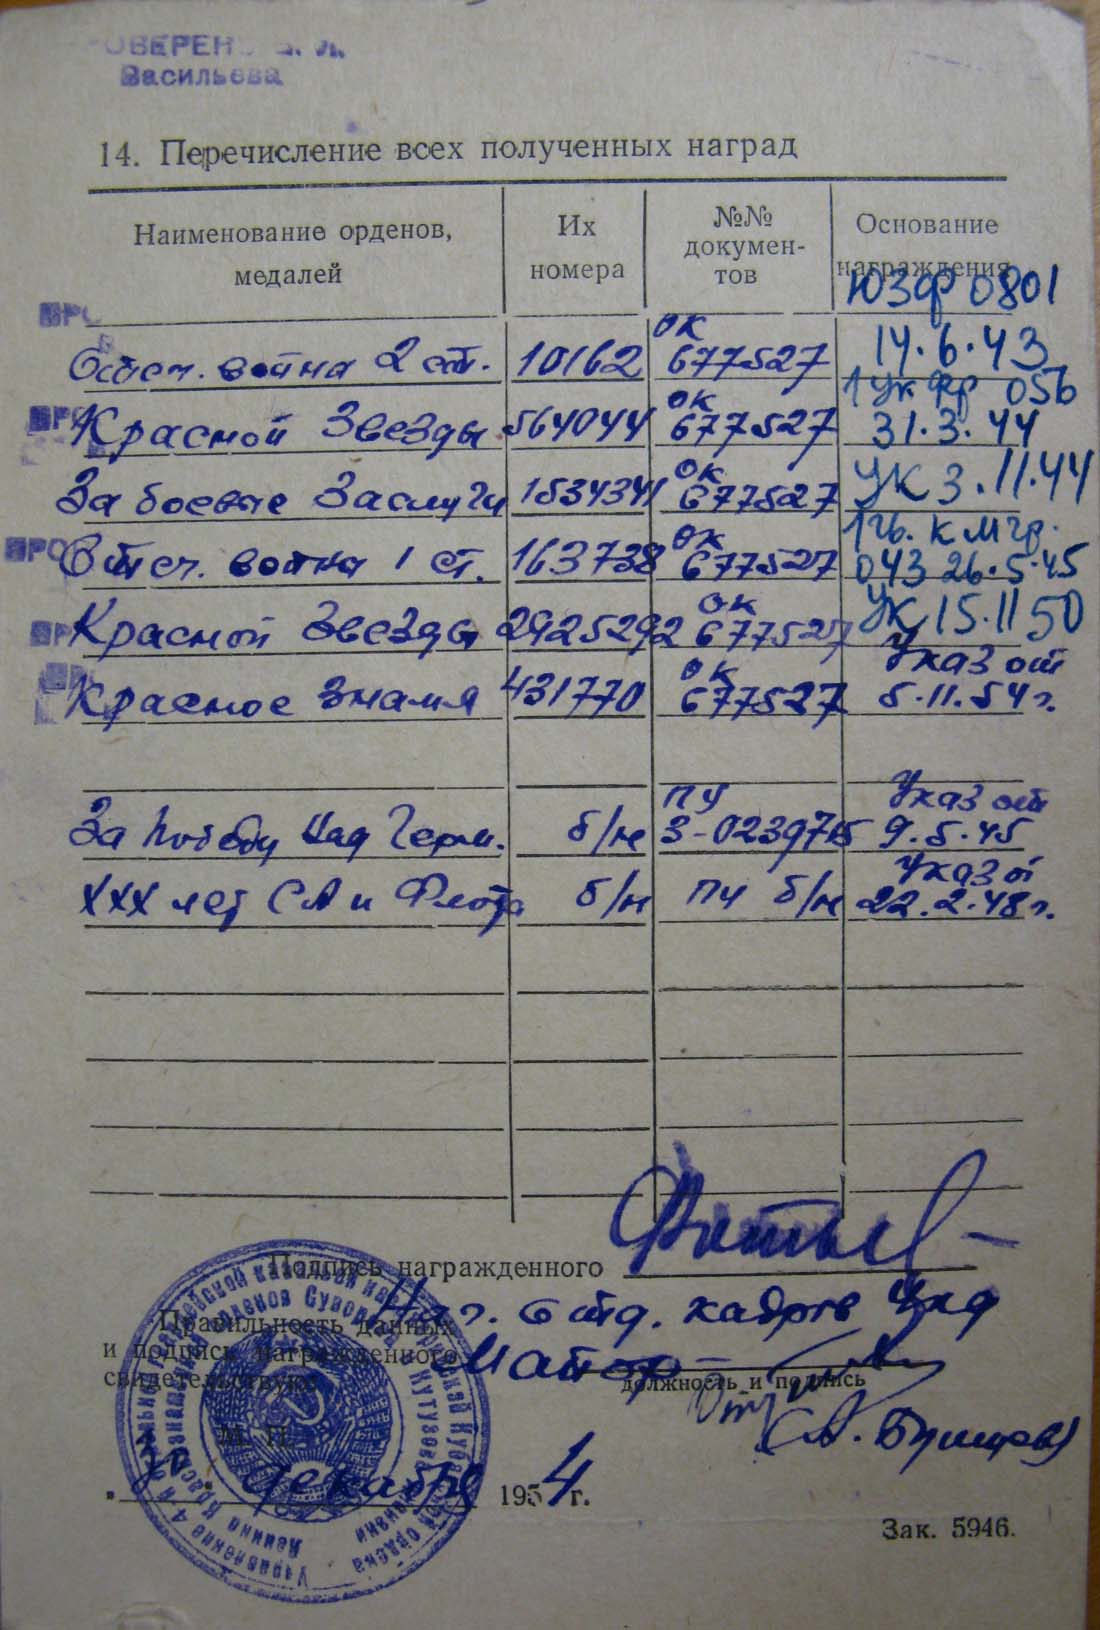 Васильева
14. Перечисление всех полученных наград
Наименование орденов, медалей
Их номера
№№ докумен-тов
Основание награждения
ЮЗФ 0801
Отеч. война 2 ст. 10162 ОК 677527 14.6.43
1 Укр фр 056
Красной Звезды 564044 ОК 677527 31.3.44
За боевые Заслуги 1534341 ОК 677527 УК 3.11.44
Отеч. война 1 ст. 163738 ОК 677527 1 гв. КМгр. 043 26.5.45
Красной Звезды 2925292 ОК 677527 УК 15.11 50
Красное Знамя 431770 ОК 677527 Указ от 5.11.54 г.
За победу над Герм. б/н ПУ З-0239715 Указ от 9.5.45
XXX лет СА и Флота б/н ПУ б/н Указ от 22.2.48 г.
Подпись награжденного
Нач. 6 отд. кадров
Правильность данных
и подпись награжденного
свидетельствую
Майор
должность и подпись
М. П.
декабря 1954 г.
Зак. 5946.